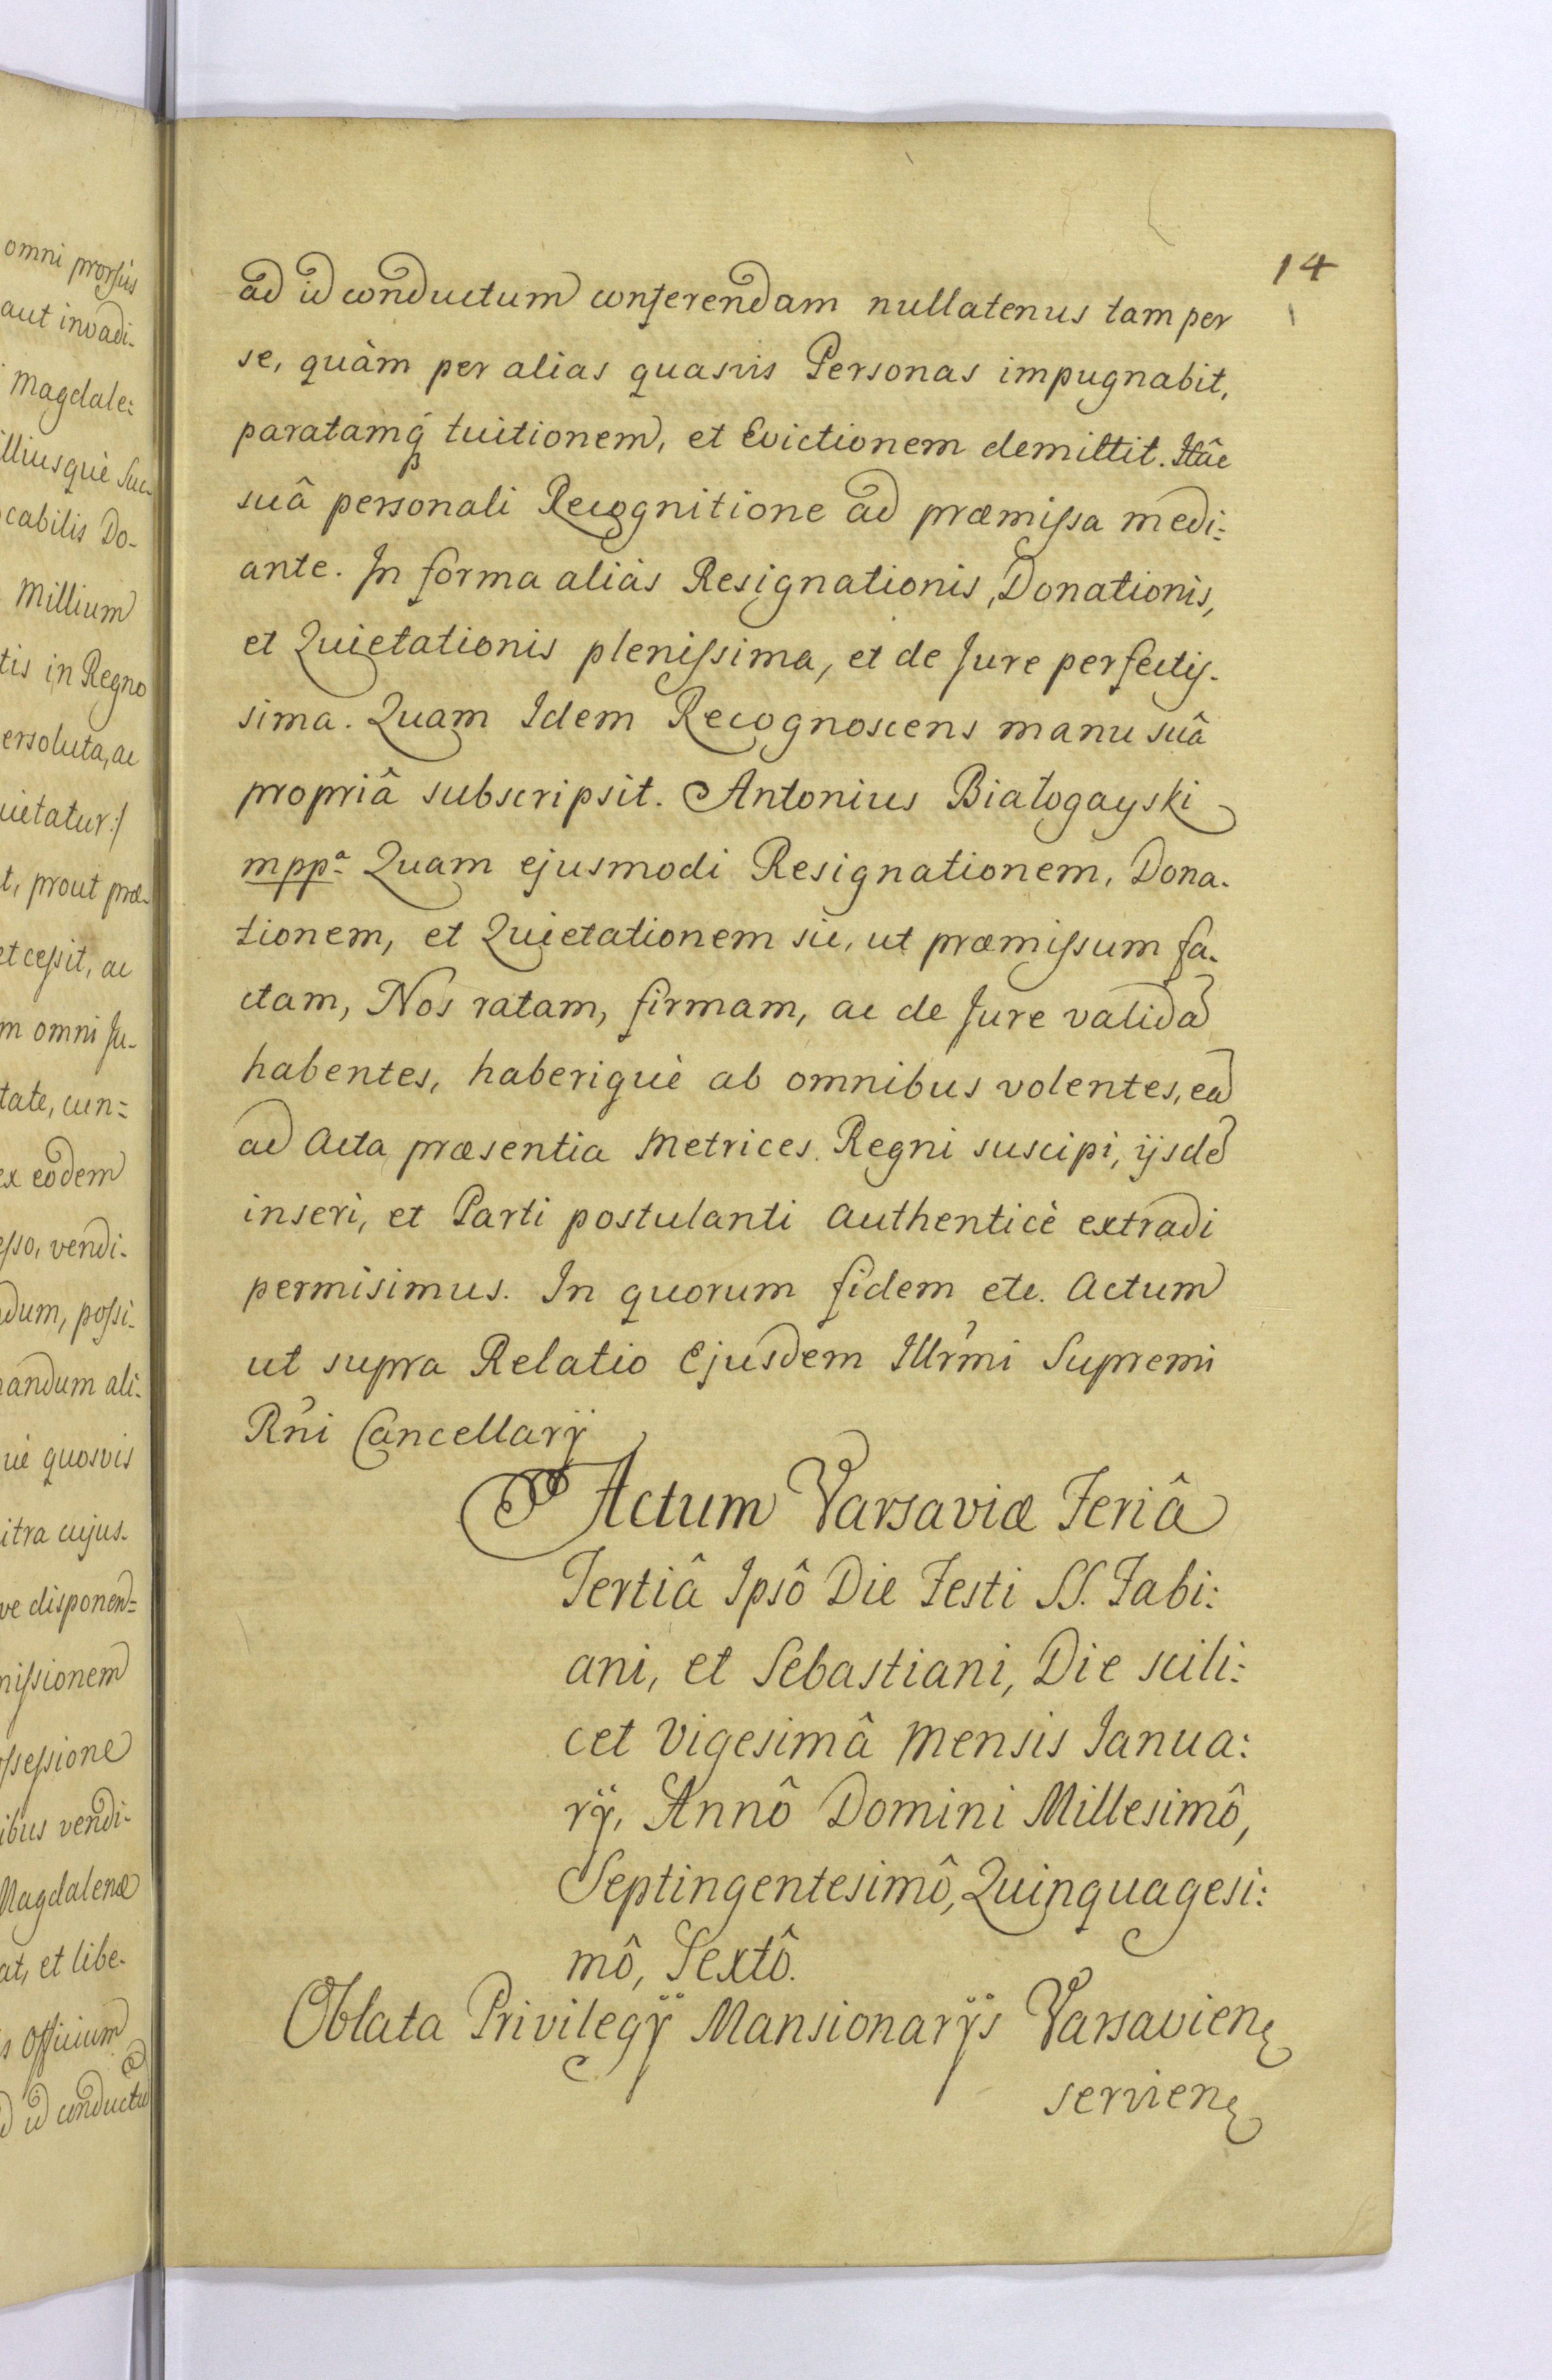 omni prorsùs
aut invadi-
Magdale:
illiusquè Suc-
cabilis Do-
Millium
tis in Regno
ersoluta, ac
uietatur:/
t, prout præ-
et cessit, ac
m omni Ju-
tate, cun=
ex eodem
esso, vendi-
dum, possi-
andum ali-
uè quosvis
itra cujus-
ve disponend=
missionem
ossessione
ibus vendi-
Magdalenæ
at, et libe-
s Officium
d id conductũ
14
ad id conductum conferendam nullatenus tam per
se, quàm per alias quasvis Personas impugnabit,
paratamq́ tuitionem, et Evictionem demittit. Hâc
suâ personali Recognitione ad præmissa medi:
ante. In forma aliàs Resignationis, Donationis,
et Quietationis plenissima, et de Jure perfectis-
sima. Quam Idem Recognoscens manu suâ
propriâ subscripsit. Antonius Białogayski
mppª Quam ejusmodi Resignationem, Dona-
tionem, et Quietationem sic, ut præmissum fa-
ctam, Nos ratam, firmam, ac de Jure validã
habentes, haberiquè ab omnibus volentes, eã
ad Acta præsentia Metrices Regni suscipi, ijsdẽ
inseri, et Parti postulanti Authenticè extradi
permisimus. In quorum fidem etc. Actum
ut supra Relatio Ejusdem Illr̃mi Supremi
Rñi Cancellarÿ
Actum Varsaviæ Feriâ
Tertiâ Ipsô Die Festi SS. Fabi:
ani, et Sebastiani, Die scili:
cet Vigesimâ Mensis Janua:
rÿ, Annô Domini Millesimô,
Septingentesimô, Quinquagesi:
mô, Sextô.
Oblata Privilegÿ Mansionarÿs Varsavien
servien